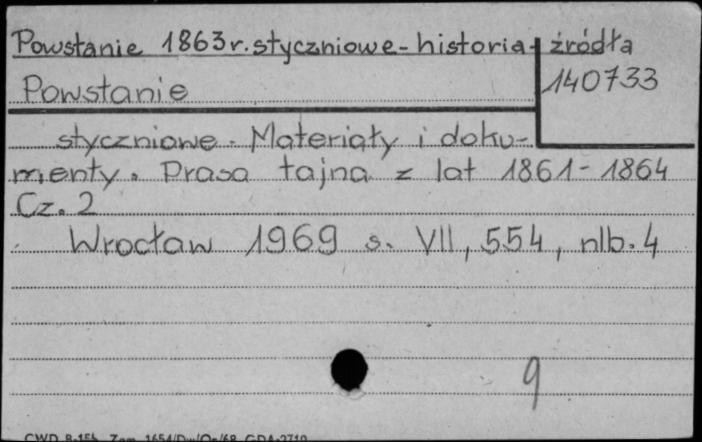 Powstanie 1863r. styczniowe - historia - źródła
140733
Powstanie
styczniowe. Materiały i doku-
menty. Prasa tajna z lat 1861-1864
Cz. 2
Wrocław 1969 s. VII, 554, nlb. 4
9
CWD